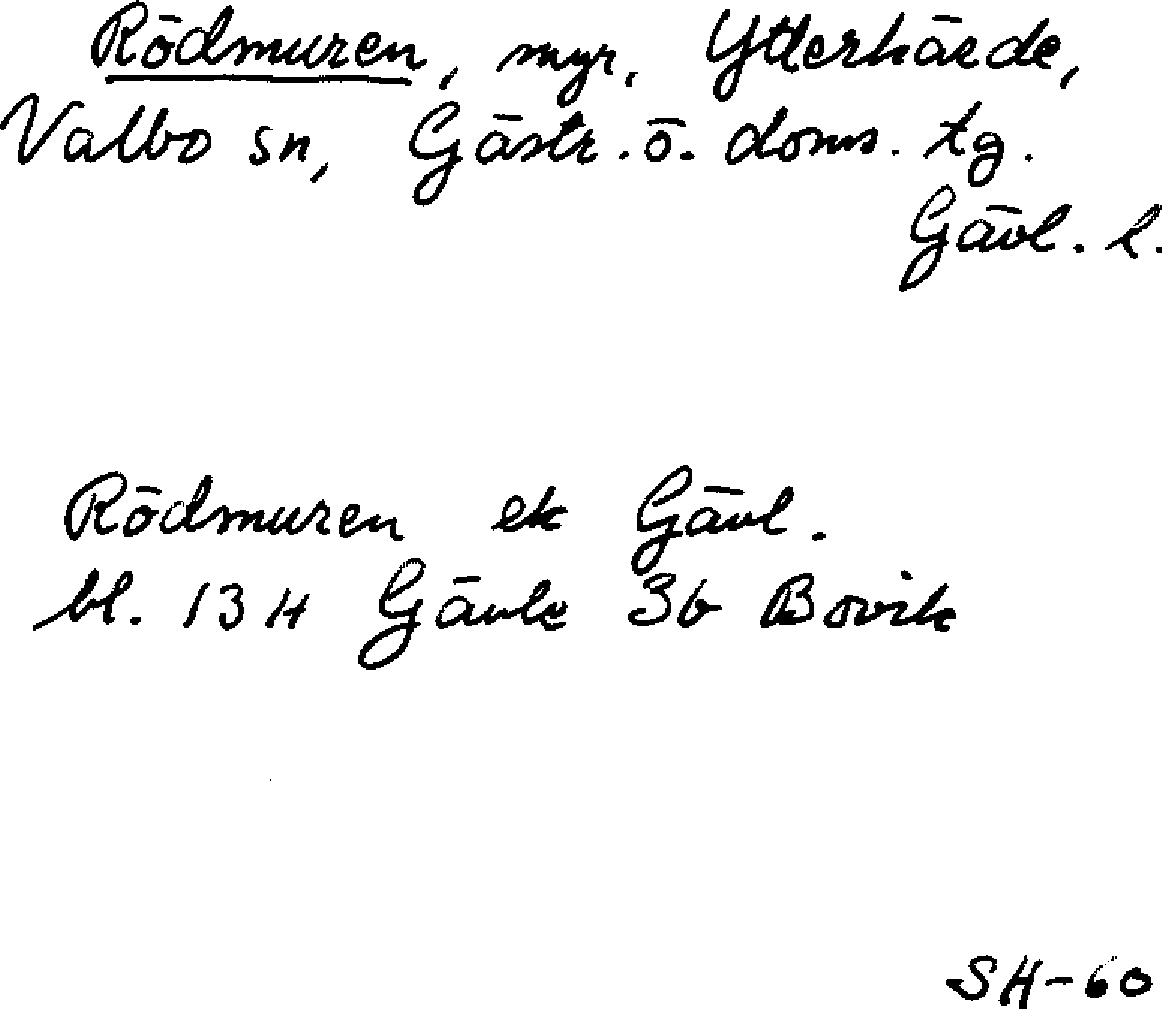 Rödmuren, myr, Ytterhärde,
Valbo sn, Gästr. ö. doms. tg.
Gävl. l.
Rödmuren ek Gävl.
bl. 13 H Gävle 3b Bovik
SH-60